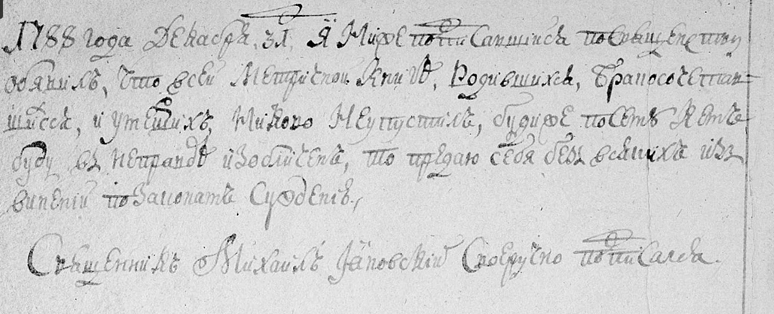 1788 года Декабря, 31, Я Ниже подписавшийся по священству
обявилъ, что въ сей Метричной Книгѣ, Родившихся, бракосочетав-
шихся, и умершихъ, никого неупустилъ, будиже
буду въ неправдѣ изобличенъ, то предаю себя безъ всякихъ изъ
винений позаконамъ Сужденію,
Священникъ Михаилъ Яновский Своеручно подписался.